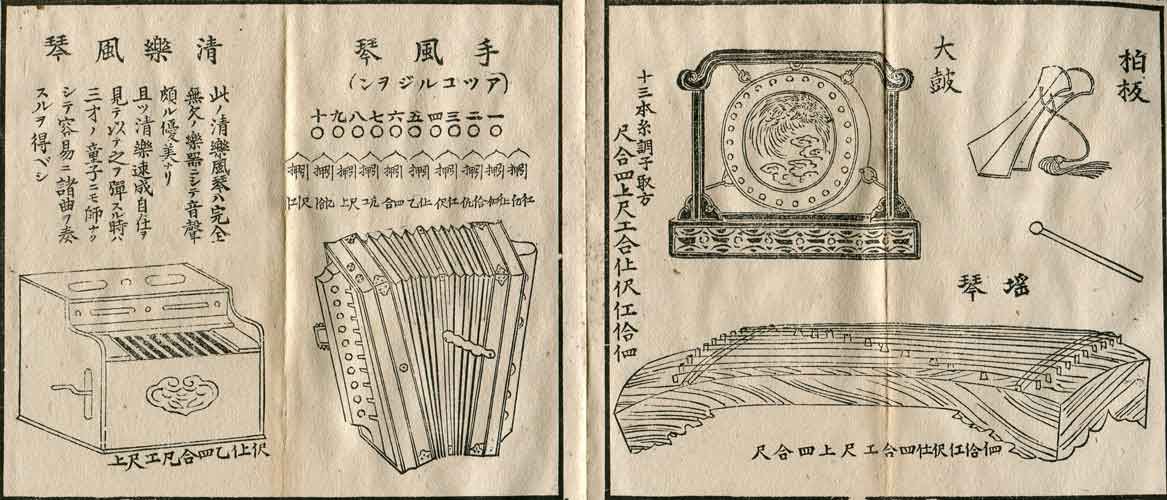 柏板
大鼓
十三本糸調子取方
尺合四上尺工合仩伬仜佮伵
瑶琴
尺合四上尺工合四仩伬仜佮伵
手風琴
(アツコルジヲン)
一二三四五六七八九十
押引 押引 押引 押引 押引 押引 押引 押引 押引 押引
清樂風琴
此ノ清樂風琴ハ完全
無欠ノ樂器ニシテ音聲
頗ル優美ナリ
且ツ清樂速成自在ヲ
見テ以テ之ヲ彈スル時ハ
三才ノ童子ニモ師ナク
シテ容易ニ諸曲ヲ奏
スルヲ得ベシ
上尺工凡合四乙仩伬